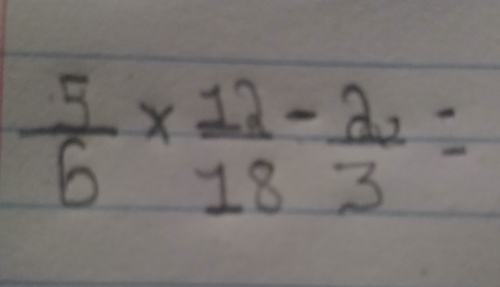 5/6 × 12/18 - 2/3 =